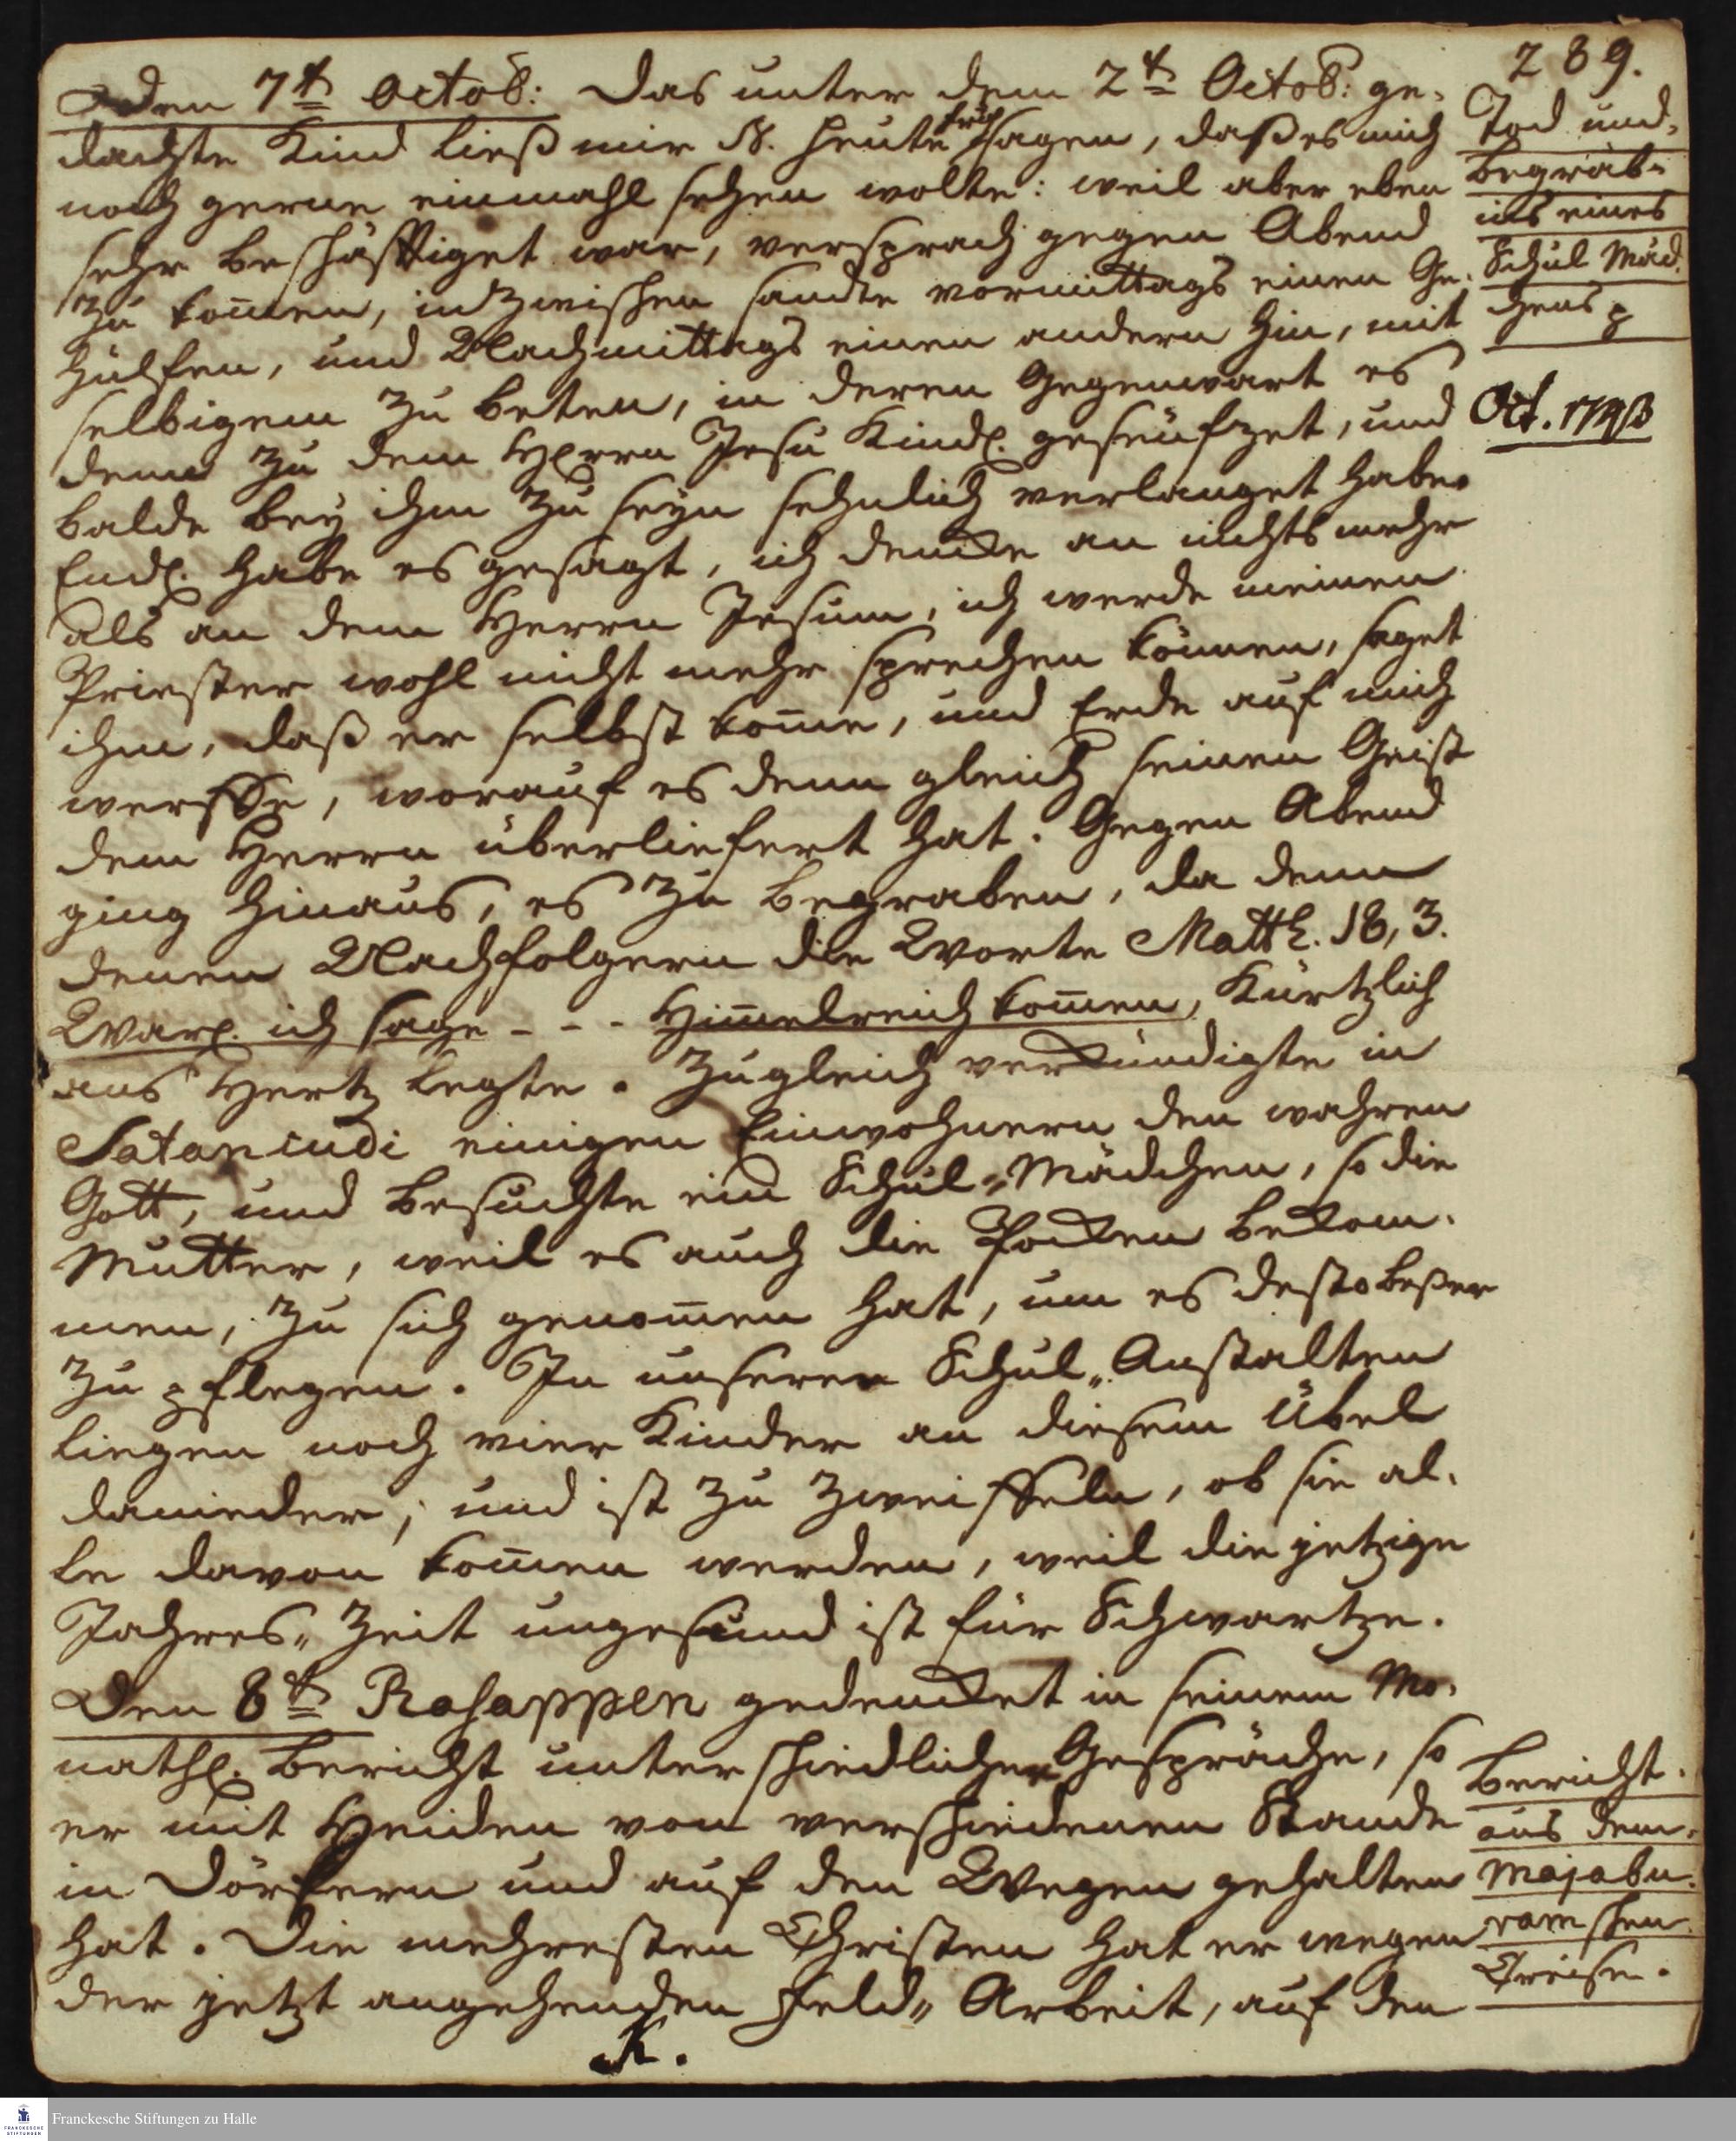 289.
Den 7t Octob: Das unter dem 2t Octob: ge-
dachte Kind ließ mir N. heute früh sagen, daß es mich
noch gerne einmahl sehen wolte: weil aber eben
sehr beschäfftiget war, versprach gegen Abend
zu kom̄en, indzwischen sandte vormittags einen Ge-
hülfen, und Nachmittags einen andern hin, mit
selbigem zu beten, in deren Gegenwart es
denn zu dem HErrn Jesu Kindl. geseufzet, und
balde bey ihm zu seyn sehnlich verlanget habe.
Endl. habe es gesagt, ich dencke an nichts mehr
als an dem Herrn Jesum, ich werde meinen
Priester wohl nicht mehr sprechen können, saget
ihm, daß er selbst kom̄e, und Erde auf mich
werffe, worauf es denn gleich seinen Geist
dem Herrn überliefert hat. Gegen Abend
ging hinaus, es zu begraben, da denn
denen Nachfolgern die Worte Matth. 18, 3.
Warl. ich sage - - - Him̄elreich kom̄en, kürtzlich
ans Hertz legte. Zugleich verkündigte in
Satancudi einigen Einwohnern den wahren
Gott, und besuchte ein Schul-Mädchen, so die
Mutter, weil es auch die Pocken bekom-
men, zu sich genom̄en hat, um es desto beßer
zu pflegen. In unseren Schul-Anstalten
liegen noch vier Kinder an diesem Übel
danieder, und ist zu zweiffeln, ob sie al-
le davon kom̄en werden, weil die jetzige
Jahres-Zeit ungesund ist für Schwartze.
Den 8t Rasappen gedencket in seinem Mo-
nathl. Bericht unterschiedlicher Gespräche, so
er mit Heiden von verschiedenen Stande
in Dörfern und auf den Wegen gehalten
hat. Die mehresten Christen hat er wegen
der jetzt angehenden Feld-Arbeit, auf den
K.
Tod und
Begräb-
nis eines
Schul Mäd-
chens p
Oct. 1743
Bericht
aus dem
Majabu-
ramschen
Creise.
Franckesche Stiftungen zu Halle
FRANCKESCHE
STIFTUNGEN